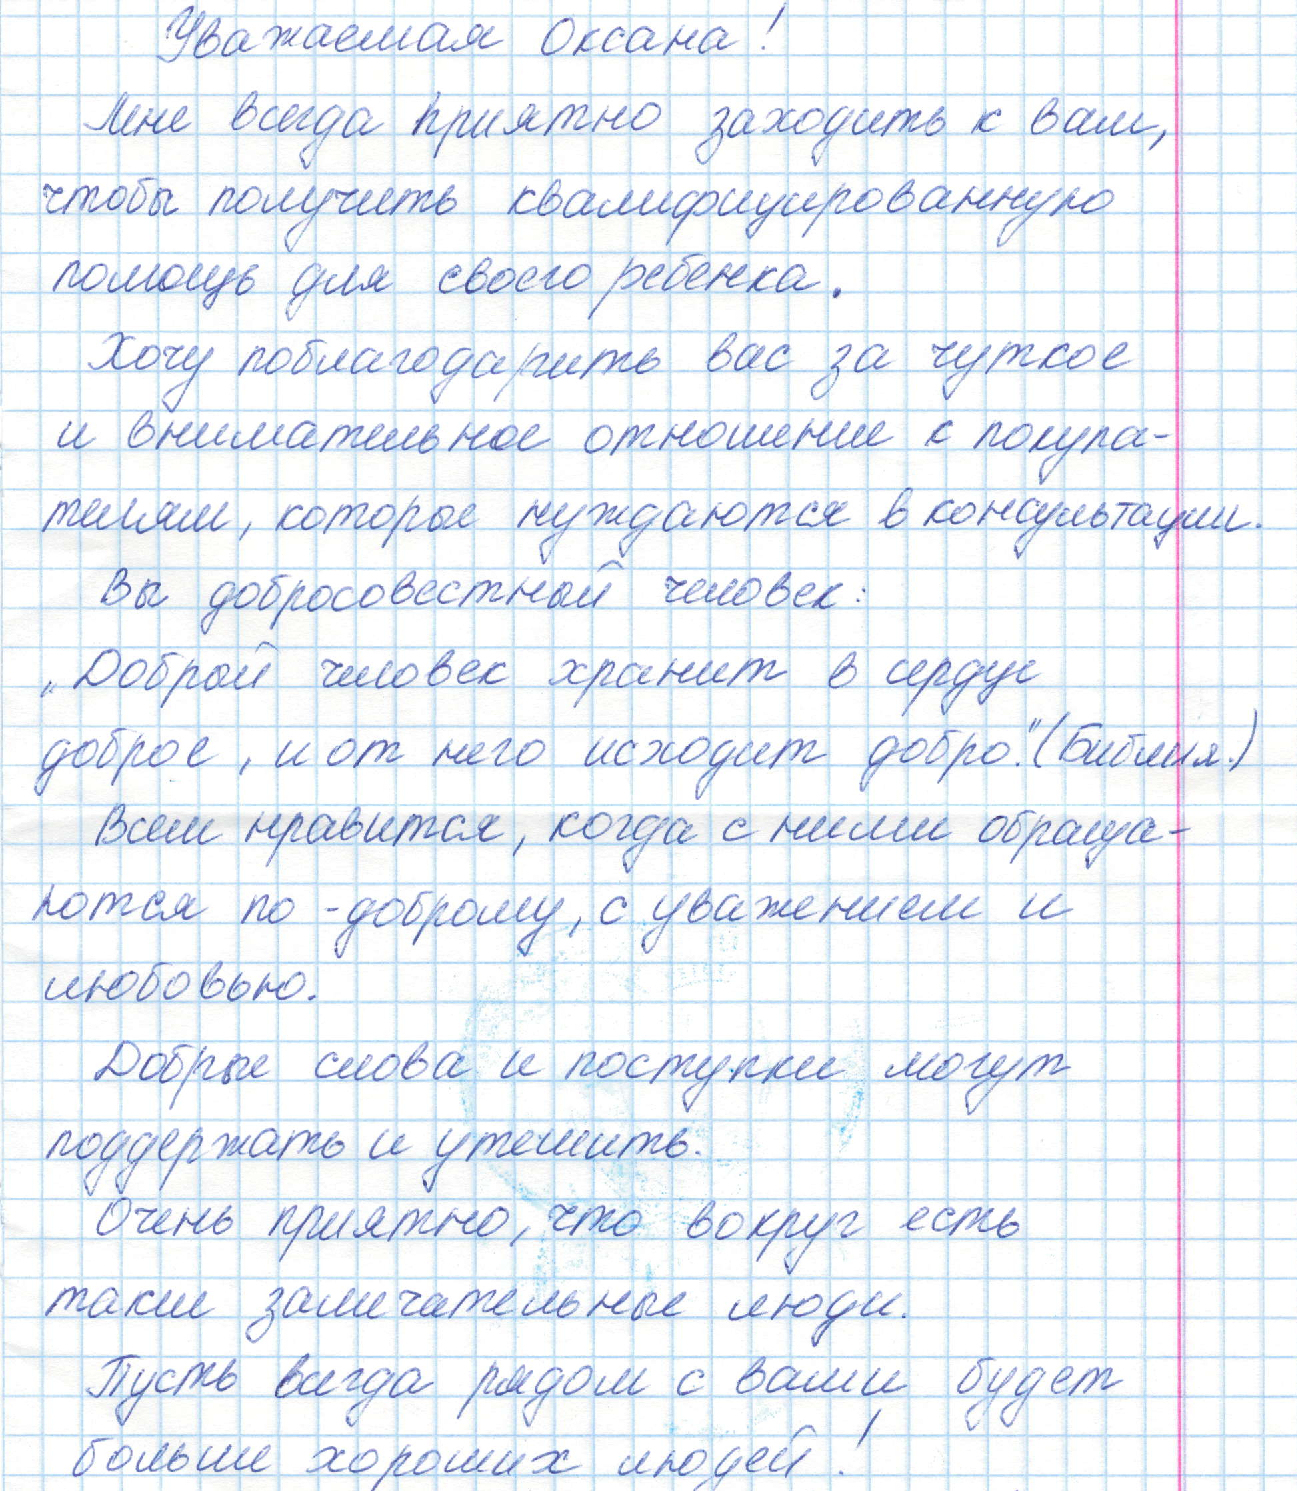 Уважаемая Оксана!
Мне всегда приятно заходить к вам,
чтобы получить квалифицированную
помощь для своего ребенка.
Хочу поблагодарить вас за чуткое
и внимательное отношение к покупа-
телям, которые нуждаются в консультации.
Вы добросовестный человек:
„Добрый человек хранит в сердце
доброе, и от него исходит добро." (Библия.)
Всем нравится, когда с ними обраща-
ются по-доброму, с уважением и
любовью.
Добрые слова и поступки могут
поддержать и утешить.
Очень приятно, что вокруг есть
такие замечательные люди.
Пусть всегда рядом с вами будет
больше хороших людей!